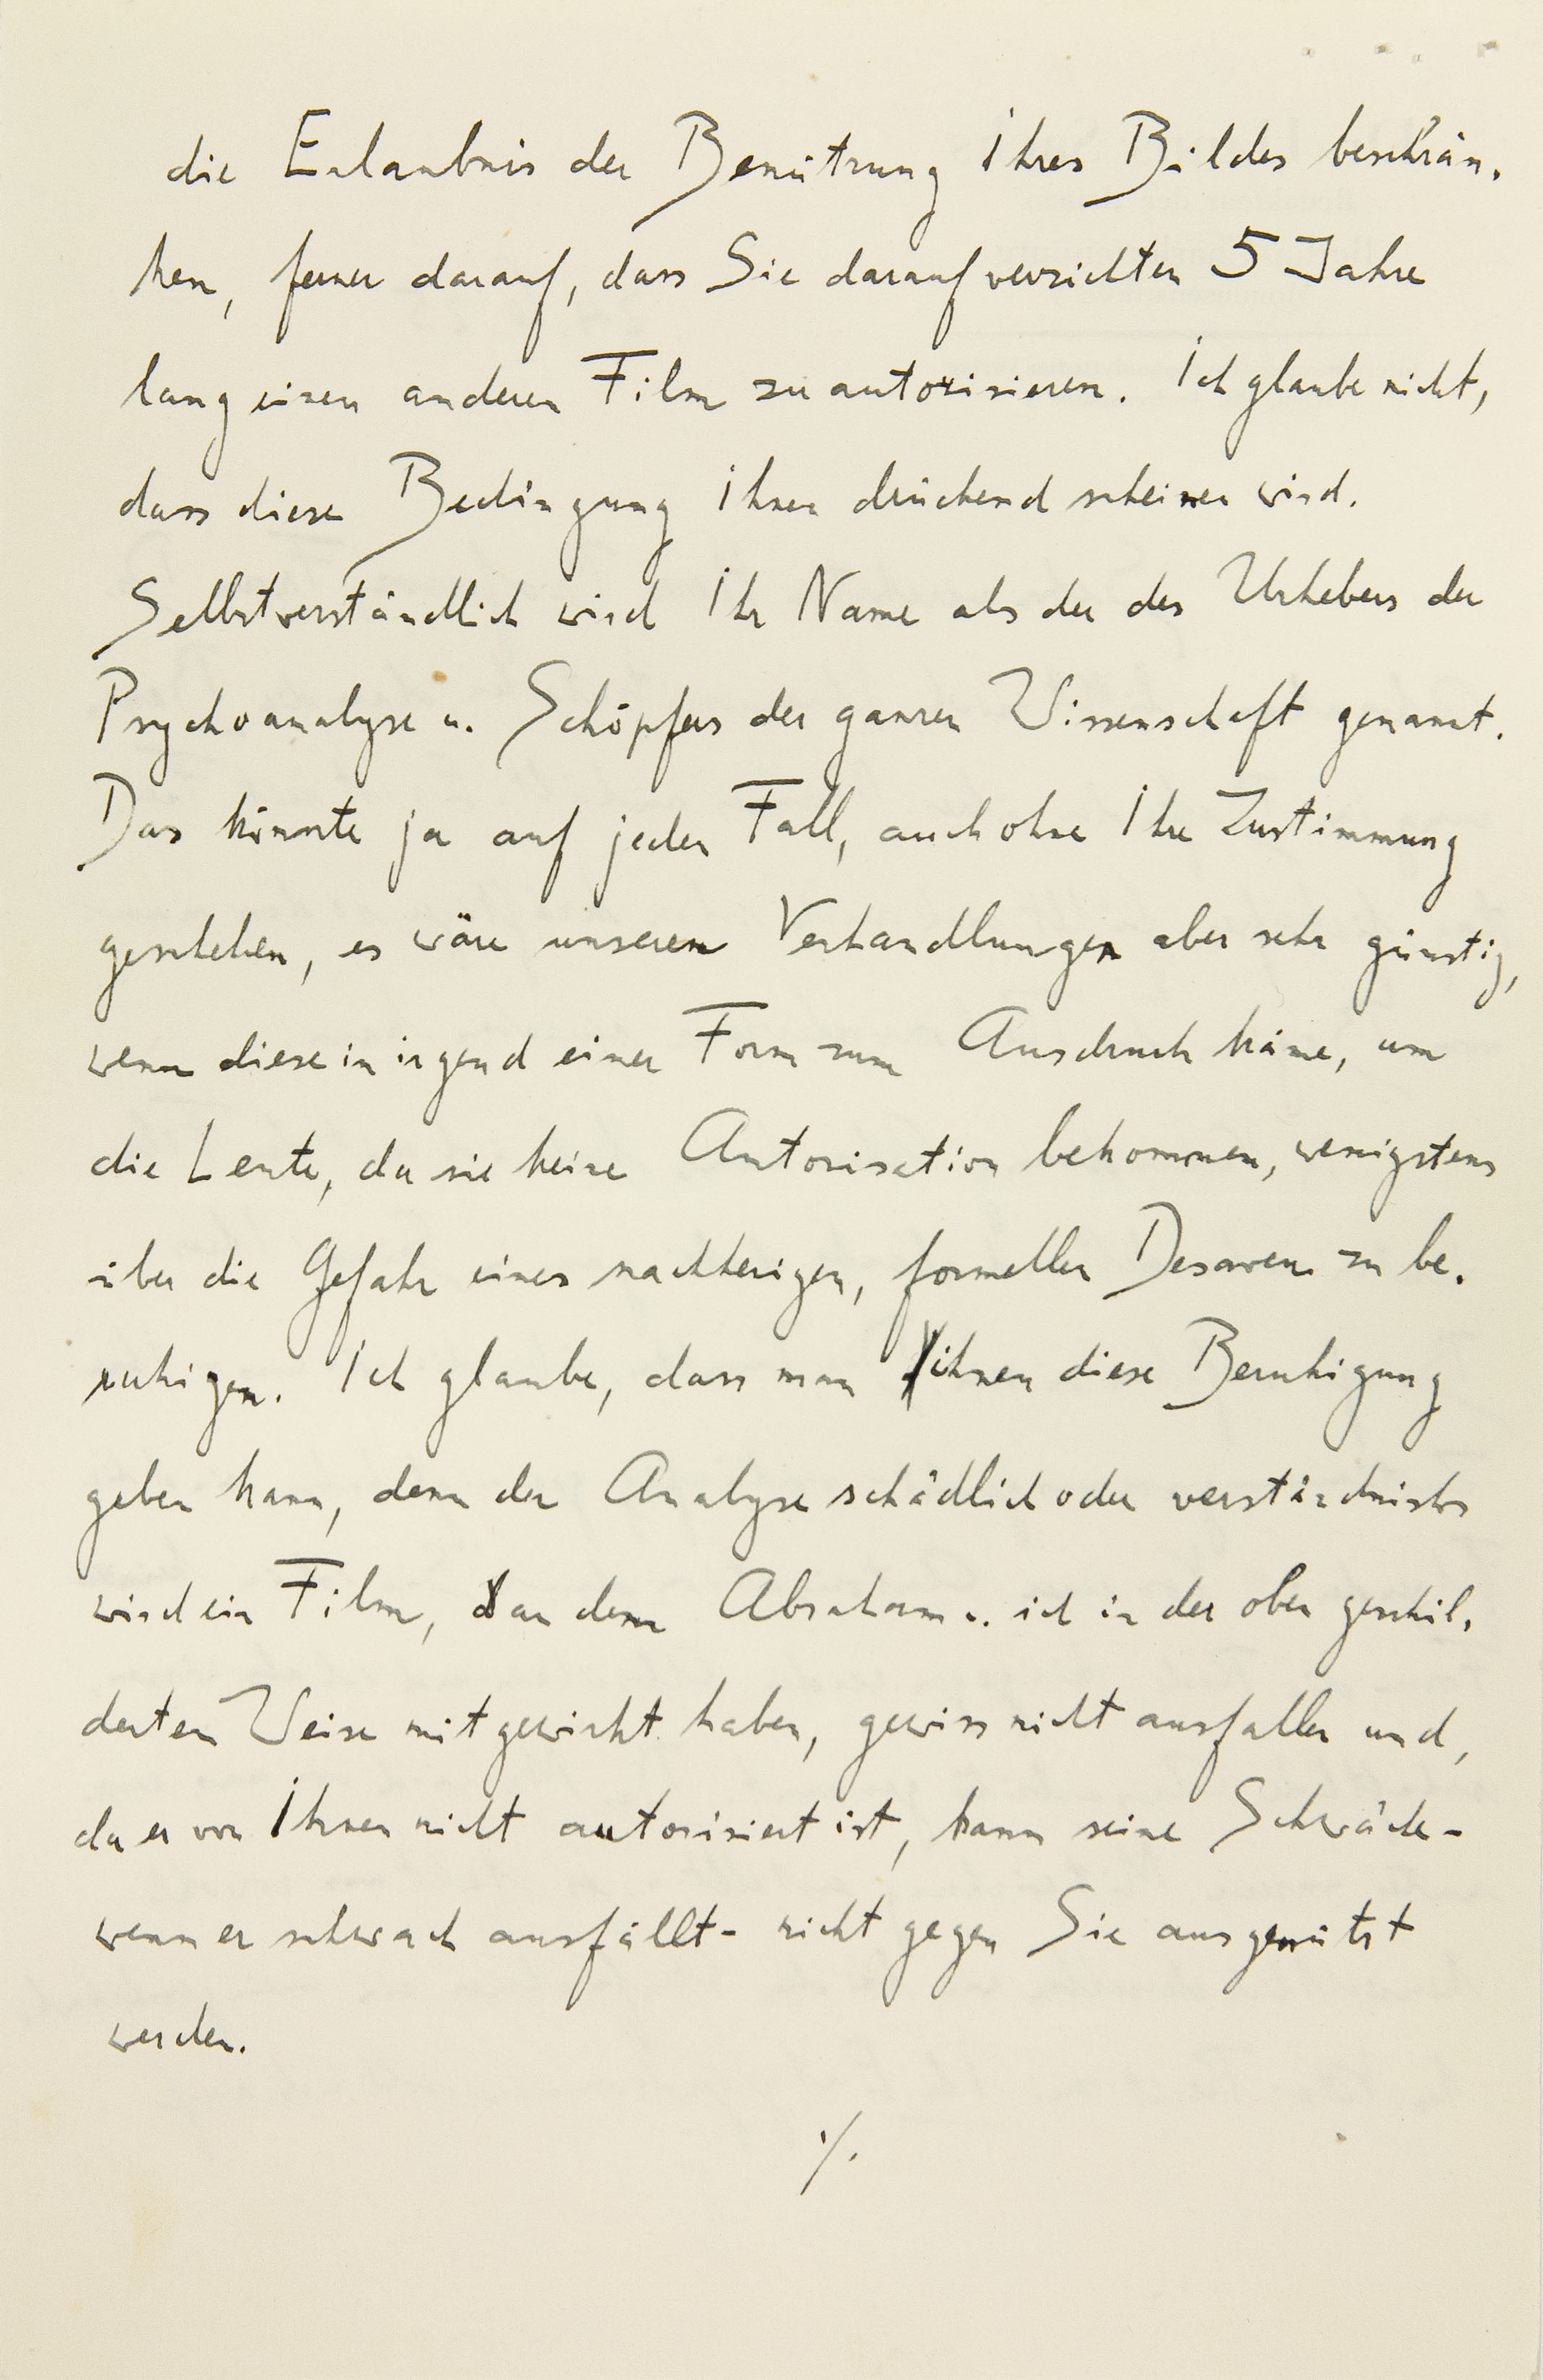 die Erlaubnis der Benützung Ihres Bildes beschrän-
ken, ferner darauf, dass Sie darauf verzichten 5 Jahre
lang einen anderen Film zu autorisieren. Ich glaube nicht,
dass diese Bedingung Ihnen drückend scheinen wird.
Selbstverständlich wird Ihr Name als der des Urhebers der
Psychoanalyse u. Schöpfers der ganzen Wissenschaft genannt.
Das könnte ja auf jeden Fall, auch ohne Ihre Zustimmung
geschehen, es wäre unseren Verhandlungen aber sehr günstig,
wenn diese in irgend einer Form zum Ausdruck käme, um
die Leute, da sie keine Autorisation bekommen, wenigstens
über die Gefahr eines nachherigen, formellen Desaveu zu be-
ruhigen. Ich glaube, dass man ihnen diese Beruhigung
geben kann, denn der Analyse schädlich oder verständnislos
wird ein Film, an dem Abraham u. ich in der oben geschil-
derten Weise mitgewirkt haben, gewiss nicht ausfallen und,
da er von Ihnen nicht autorisiert ist, kann seine Schwäche -
wenn er schwach ausfällt - nicht gegen Sie ausgenützt
werden.
./.